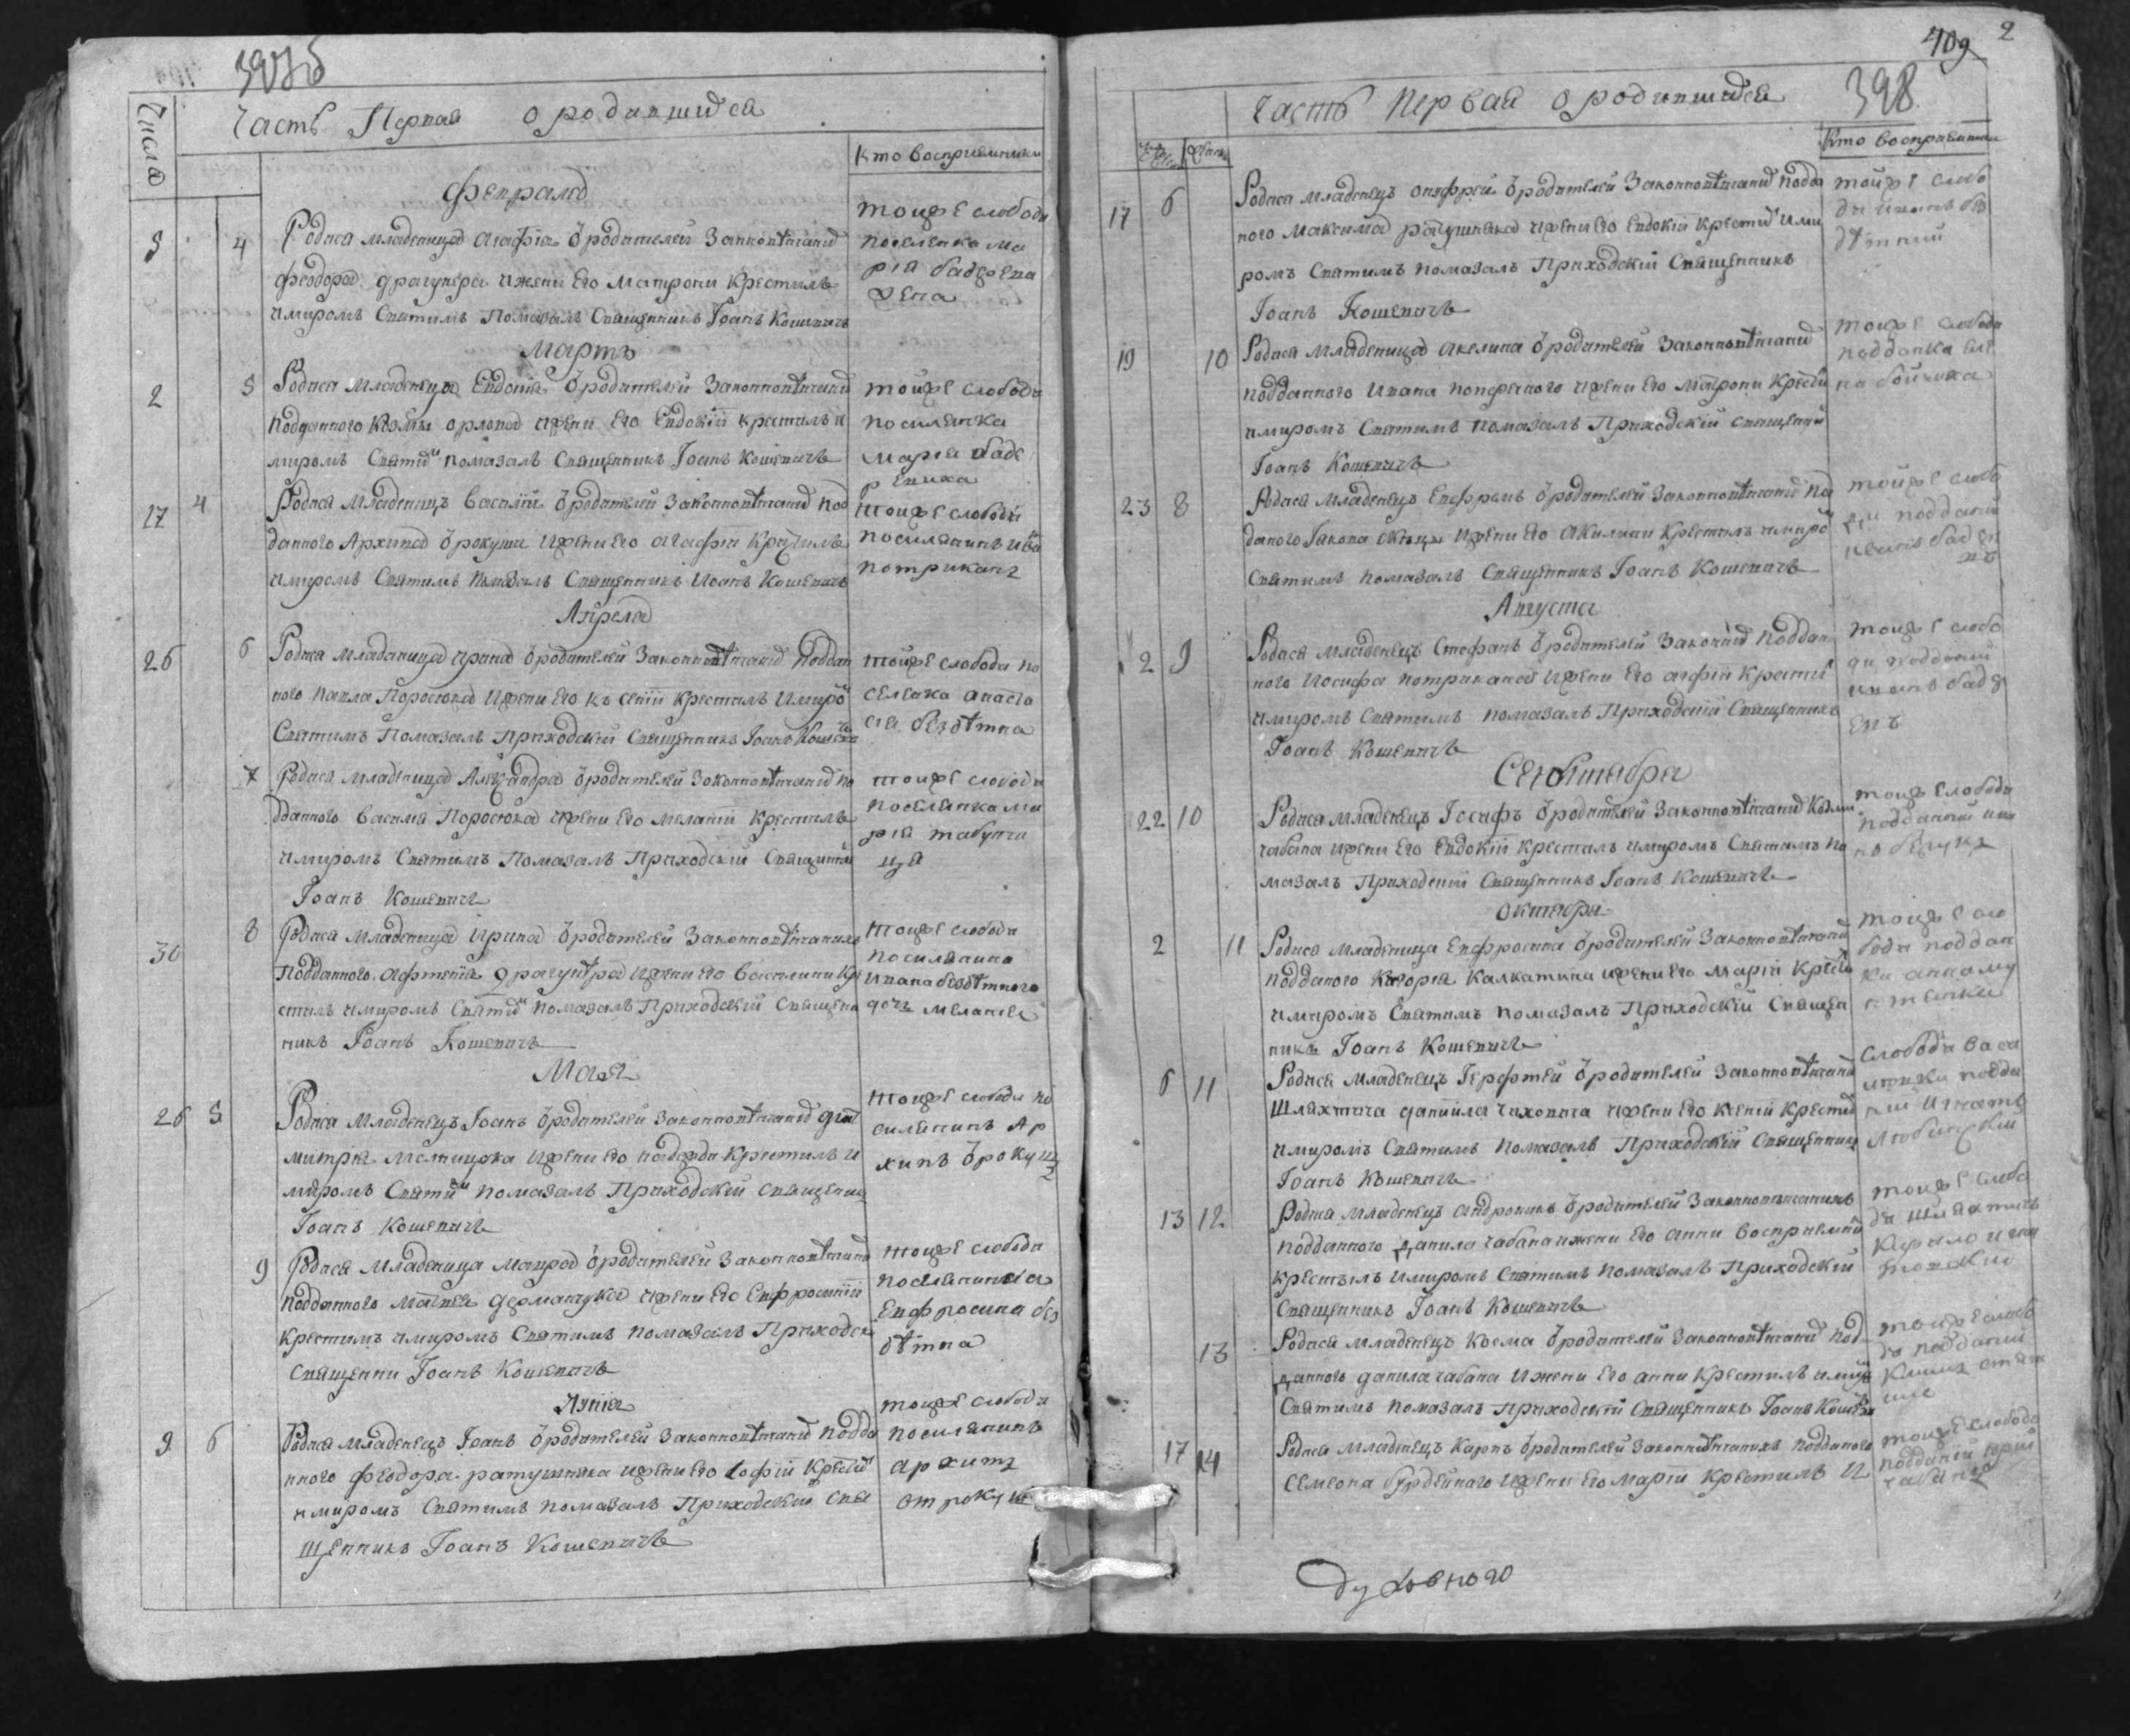 397б
Числа
Часть Первая о родившихся
Кто восприемники
февраля
5 4 Родися младеница агафiя ѿ родителей законновѣнчаних
феодора драгунера и жени его матрони крестилъ
и миромъ Святимъ Помазалъ Священникъ Iоанъ Кошевичъ
тоижъ слободи
поселенка ма
рiя
Мартъ
2 5 Родися младеница Евдокiя ѿ родителей законновѣнчаних
подданного Козмы орлова и жени его Евдокiи крестилъ и
миромъ Святим помазалъ Священникъ Iоанъ Кошевичъ
тоижъ слободи
поселянка
марiя бабе
рениха
17 4 Родися младенецъ василiй ѿ родителей законновѣнчаних под
данного Архипа ѿрокуши и жени его агафiи крестилъ
и миромъ Святимъ помазалъ Священникъ Иоанъ Кошевичъ
тоижъ слободи
поселянинъ ива
потриканъ
Апреля
26 6 Родися младеница ирина ѿ родителей законновѣнчаних поддан
ного павла Поросюка и жени его ксенiи крестилъ и миро
Святимъ Помазалъ Приходскiй Священникъ Iоанъ Коше
тоижъ слободи по
селенка анаста
сiя бездѣтна
7 Родися младеница Александра ѿ родителей законновѣнчаних по
дданного василiя Поросюка и жени его меланiи крестилъ
и миромъ Святимъ Помазалъ Приходскiй Священни
Iоанъ Кошевичъ
тоижъ слободи
поселянка ма
рiя табунчи
ця
30 8 Родися младеница Ирина ѿ родителей законновѣнчанихъ
подданного драгунера и жени его василини кре
стилъ и миромъ Святим помазалъ Приходскiй Священ
никъ Iоанъ Кошевичъ
тоижъ слободи
поселянина
ивана бездѣтного
дочь меланiя
Мая
26 5 Родися младенецъ Iоанъ ѿ родителей законновѣнчаних ди
митрiя мелницка и жени его надежди крестилъ и
миромъ Святим помазалъ Приходскiй священник
Iоанъ Кошевичъ
тоижъ слободи по
селянинъ Ар
хипъ ѿрокуш
9 Родися младеница мавра ѿ родителей законновѣнчаних
подданного матвея дерманчука и жени его Евфросинiи
крестилъ и миромъ Святимъ помазалъ Приходск
священни Iоанъ Кошевичъ
тоижъ слободи
поселянинка
Евфросина без
дѣтна
Iунiя
9 6 Родися младенецъ Iоанъ ѿ родителей законновѣнчаних подда
нного феодора ратушняка и жени его софiи крести
и миромъ Святимъ помазалъ Приходскiй свя
щенникъ Iоанъ Кошевичъ
тоижъ слободи
поселянинъ
архипъ
отрокуш
409 2
398
Часть Первая о родившихся
Кто восприемники
17 6 Родися младенецъ онуфрей ѿ родителей законновѣнчаних подда
ного максима ратушняка и жени его Евдокiи крестил и ми
ромъ Святимъ помазалъ Приходскiй Священникъ
Iоанъ Кошевичъ
тоижъ слобо
ди иванъ без
дѣтний
19 10 Родися младеница акелина ѿ родителей законновѣнчаних
подданного ивана и жени его матрони крести
и миромъ Святимъ помазалъ Приходскiй священни
Iоанъ Кошевичъ
тоижъ слободи
подданка еле
на бойчука
23 8 Родися младенецъ Евфремъ ѿ родителей законновѣнчаних по
даного Iакова и жени его Акилини крестилъ и миро
Святимъ помазалъ Священникъ Iоанъ Кошевичъ
тоижъ слобо
ди подданий
иванъ
Августа
2 9 Родися младенецъ Стефанъ ѿ родителей законних поддан
ного Иосифа потрикана и жени его агафiи крести
и миромъ Святимъ помазалъ Приходскiй Священникъ
Iоанъ Кошевичъ
тоижъ слобо
ди подданий
иванъ
Сентября
22 10 Родися младенецъ Iосифъ ѿ родителей законновѣнчаних козми
чабана и жени его Евдокiи крестилъ и миромъ Святимъ по
мазалъ Приходскiй Священникъ Iоанъ Кошевичъ
тоижъ слободи
подданий ива
октября
2 11 Родися младеница Евфросина ѿ родителей законновѣнчани
подданого калкатина и жени его марiи крести
и миромъ Святимъ помазалъ Приходскiй Священ
никъ Iоанъ Кошевичъ
тоижъ сло
боди поддан
ка анна
6 11 Родися младенецъ Терентей ѿ родителей законновѣнчани
шляхтича данiила чаховича и жени его ксенiи крестил
и миромъ Святимъ помазалъ Приходскiй Священник
Iоанъ Кошевичъ
слобода васи
подда
ний игнатъ
13 12 Родися младенецъ андроникъ ѿ родителей законновѣнчанихъ
подданного данила чабана и жени его анни
крестилъ и миромъ Святимъ помазалъ Приходскiй
Священникъ Iоанъ Кошевичъ
тоижъ слобо
ди шляхтичъ
13 Родися младенецъ косма ѿ родителей законновѣнчаних под
данного данила чабана и жени его анни крестилъ и миро
Святимъ помазалъ приходскiй Священникъ Iоанъ Коше
тоижъ слобо
ди подданий
17 14 Родися младенецъ карпъ ѿ родителей законновѣнчанихъ подданого
семеона бурдейного и жени его марiи крестилъ и
тоижъ слободи
подданiй юрiй
чабанъ
духовного